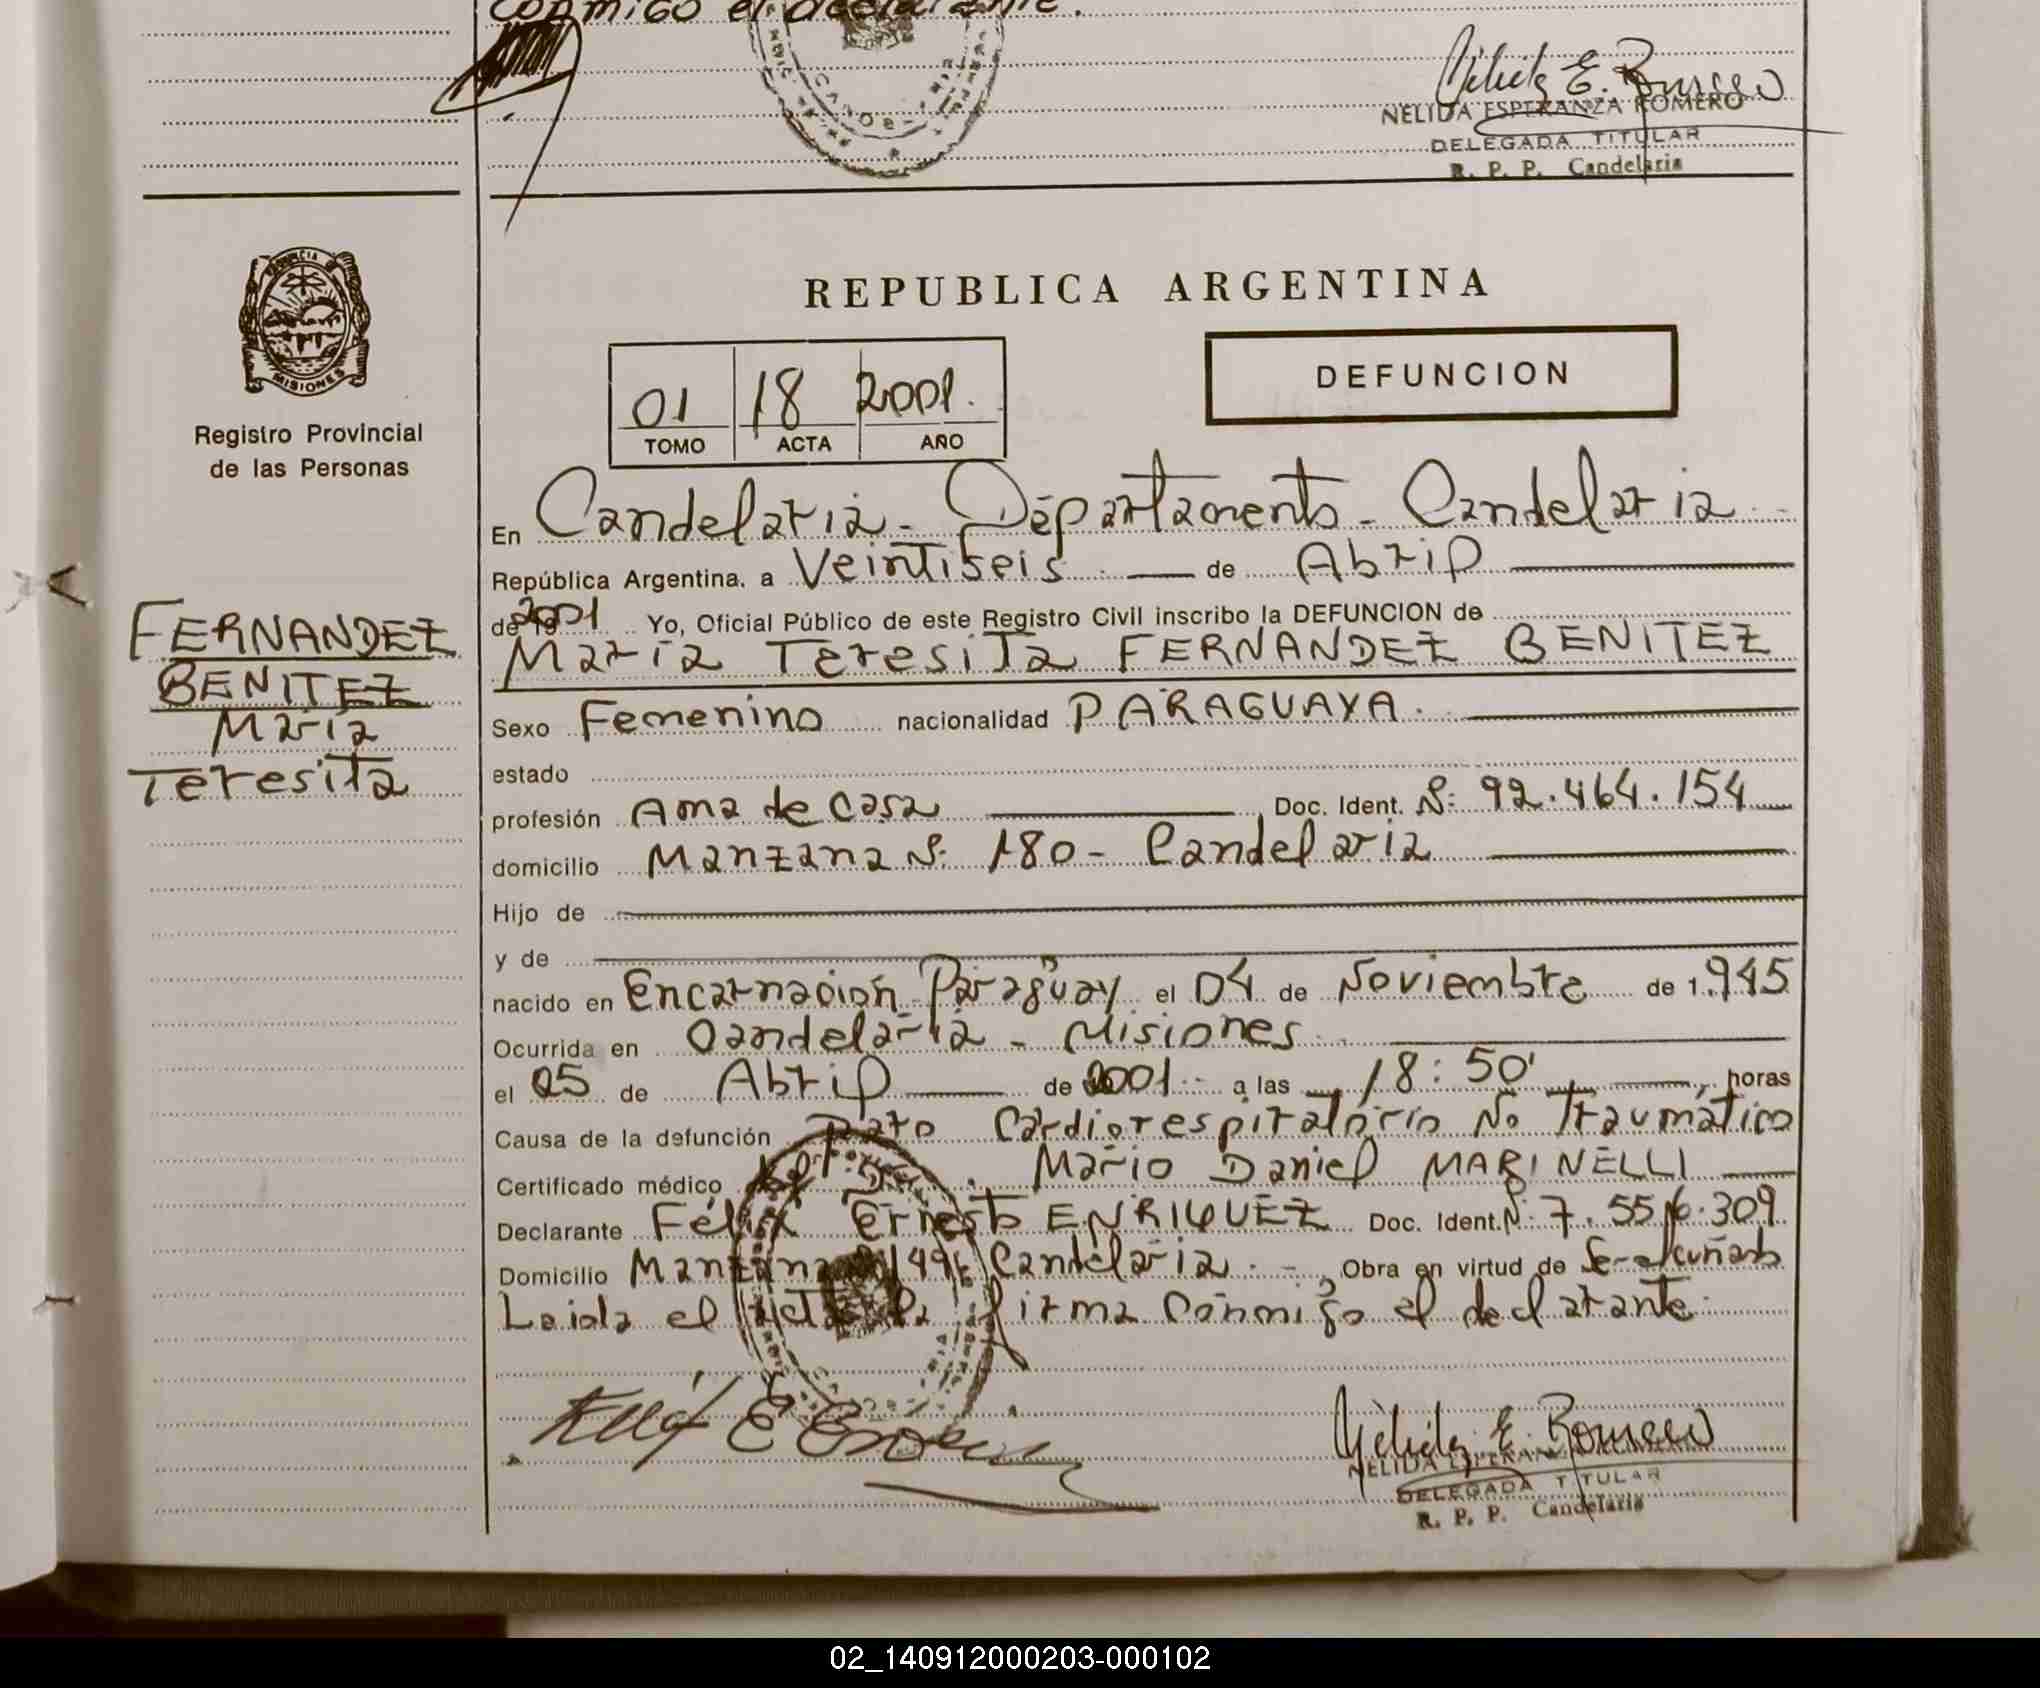 conmigo el declarante.
NELIDA ESPERANZA ROMERO
DELEGADA TITULAR
R. P. P. Candelaria
PROVINCIA DE
MISIONES
Registro Provincial
de las Personas
REPUBLICA ARGENTINA
01 18 2001.
TOMO ACTA AÑO
DEFUNCION
En Candelaria - Departamento - Candelaria -
República Argentina. a Veintiseis de Abril
de 2001 Yo, Oficial Público de este Registro Civil inscribo la DEFUNCION de
María Teresita FERNANDEZ BENITEZ
FERNANDEZ
BENITEZ
María
Teresita
Sexo Femenino nacionalidad PARAGUAYA.
estado
profesión Ama de casa Doc. Ident. Nº 92.464.154
domicilio Manzana Nº 180 - Candelaria
Hijo de
y de
nacido en Encarnación Paraguay el 04 de Noviembre de 1.945
Ocurrida en Candelaria - Misiones
el 25 de Abril de 2001 a las 18:50' horas
Causa de la defunción Paro Cardiorespiratório No Traumático
Certificado médico Mario Daniel MARINELLI
Declarante Félix Ernesto ENRIQUEZ Doc. Ident. Nº 7.556.309
Domicilio Manzana 149 Candelaria. - Obra en virtud de Ser-Cuñado
Leida el Acta la firma conmigo el declarante.
NELIDA ESPERANZA
DELEGADA TITULAR
R. P. P. Candelaria
02_140912000203-000102